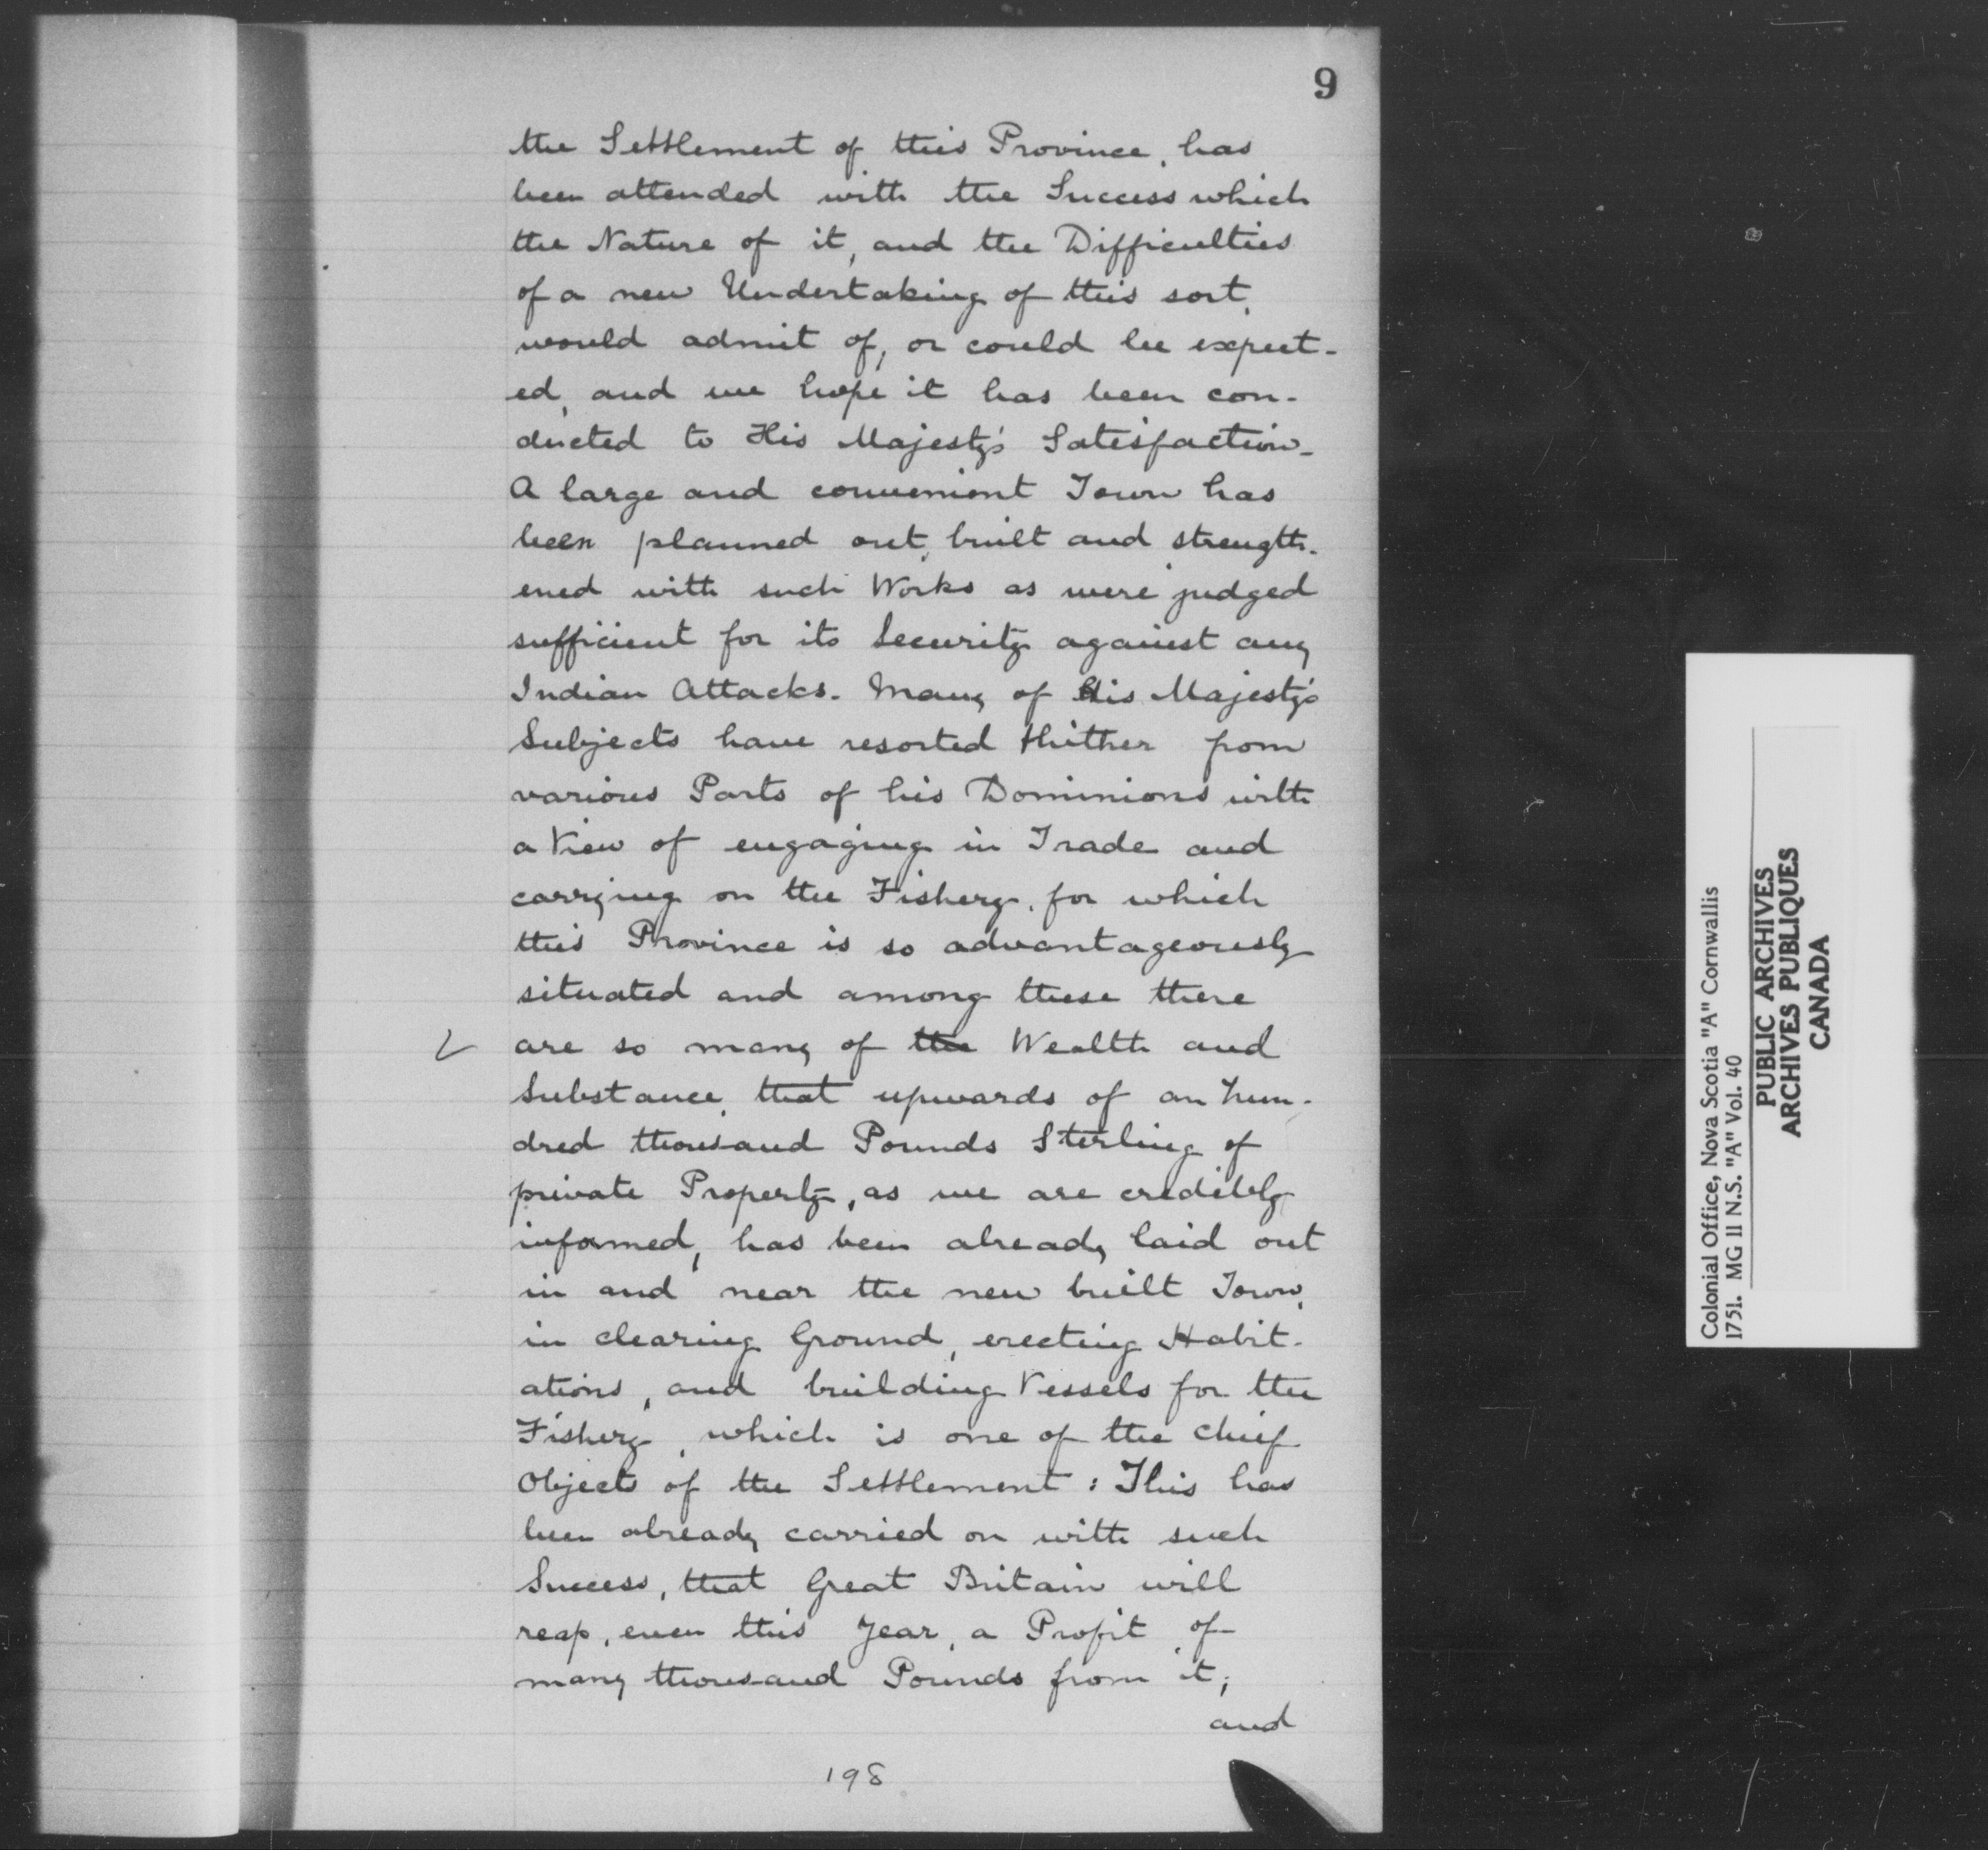 9
the Settlement of this Province, has
been attended with the Success which
the Nature of it, and the Difficulties
of a new Undertaking of this sort,
would admit of, or could be expect-
ed, and we hope it has been con-
ducted to His Majesty's Satisfaction -
A large and convenient Town has
been planned out, built and strength-
ened with such Works as were judged
sufficient for its Security against any
Indian Attacks. Many of His Majesty's
Subjects have resorted thither from
various Parts of his Dominions with
a View of engaging in Trade and
carrying on the Fishery, for which
this Province is so advantageously
situated and among these there
are so many of the Wealth and
Substance, that upwards of an hun-
dred thousand Pounds Sterling of
private Property, as we are credibly
informed, has been already laid out
in and near the new built Town,
in clearing Ground, erecting Habit-
ations, and building Vessels for the
Fishery, which is one of the chief
Objects of the Settlement: This has
been already carried on with such
Success, that Great Britain will
reap, even this Year, a Profit of
many thousand Pounds from it;
and
198
Colonial Office, Nova Scotia "A" Cornwallis
1751. MG II N.S. "A" Vol. 40
PUBLIC ARCHIVES
ARCHIVES PUBLIQUES
CANADA